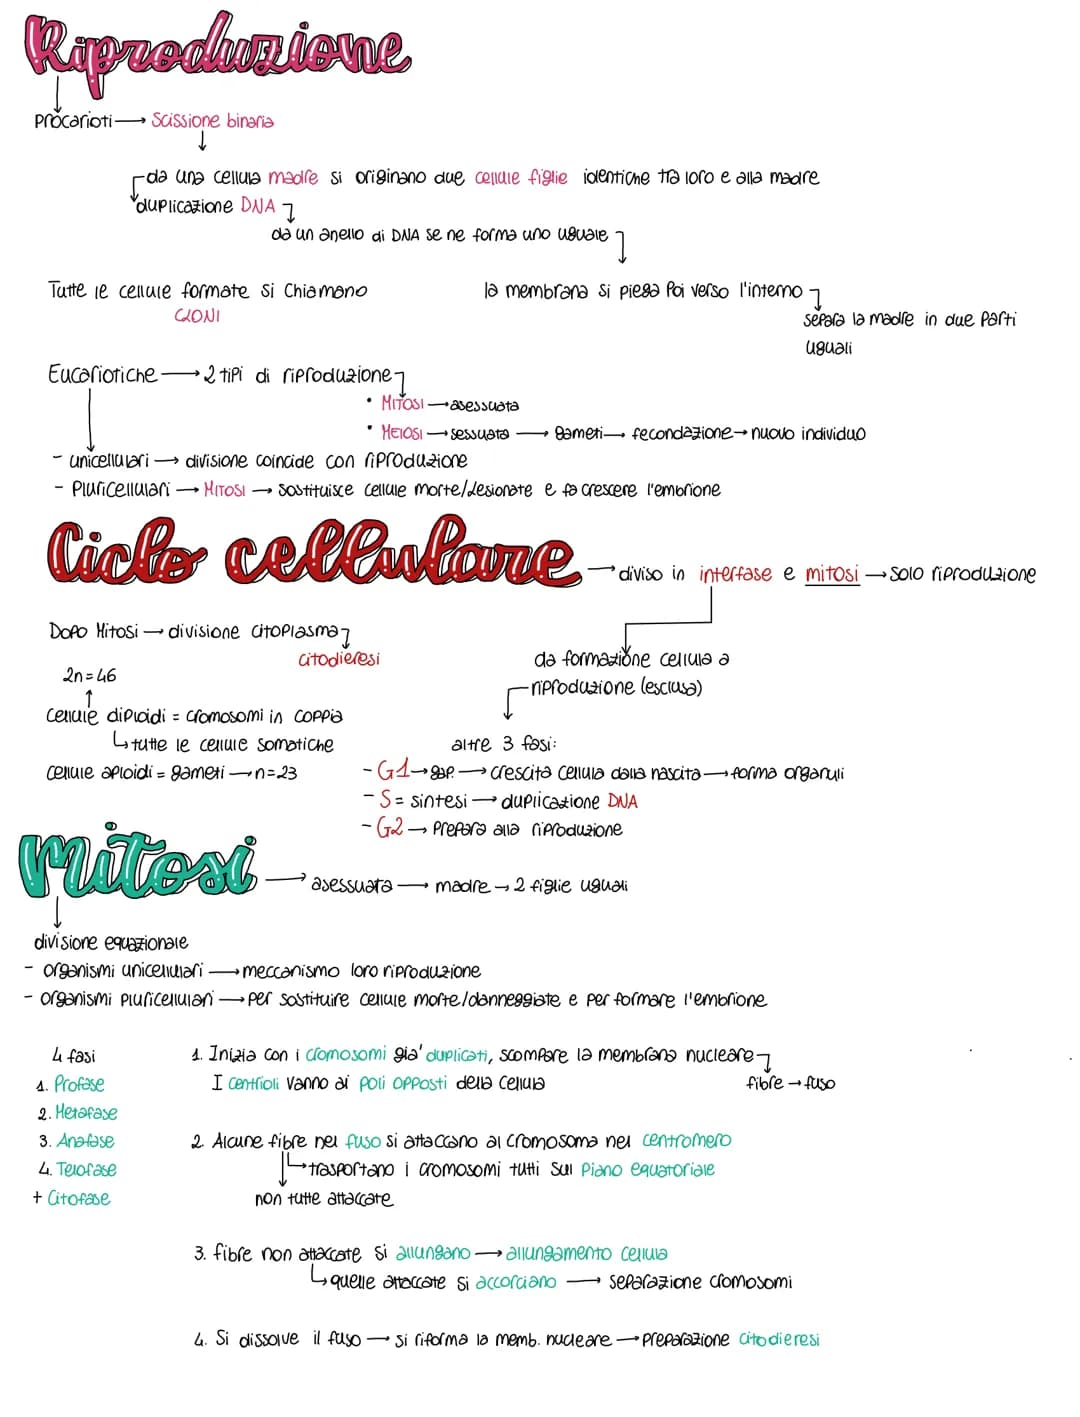 Riproduzione
Procarioti → Scissione binaria
da una cellula madre si originano due cellule figlie identiche tra loro e alla madre
duplicazione DNA
da un anello di DNA se ne forma uno uguale
Tutte le cellule formate si chiamano
CLONI
la membrana si piega poi verso l'interno
separa la madre in due parti
uguali
Eucariotiche → 2 tipi di riproduzione
• MITOSI → asessuata
• MEIOSI → sessuata → gameti → fecondazione → nuovo individuo
- unicellulari → divisione coincide con riproduzione
- Pluricellulari → MITOSI → sostituisce cellule morte/lesionate e fa crescere l'embrione
Ciclo cellulare → diviso in interfase e mitosi → solo riproduzione
Dopo Mitosi → divisione citoplasma
citodieresi
da formazione cellula a
riproduzione (esclusa)
2n=46
cellule diploidi = cromosomi in coppia
tutte le cellule somatiche
cellule aploidi = gameti → n=23
altre 3 fasi:
- G1 → gap → crescita cellula dalla nascita → forma organuli
- S = sintesi → duplicazione DNA
- G2 → Prepara alla riproduzione
Mitosi → asessuata → madre → 2 figlie uguali
divisione equazionale
- organismi unicellulari → meccanismo loro riproduzione
- organismi pluricellulari → per sostituire cellule morte/danneggiate e per formare l'embrione
4 fasi
1. Profase
2. Metafase
3. Anafase
4. Telofase
+ Citofase
1. Inizia con i cromosomi gia' duplicati, scompare la membrana nucleare
I centrioli vanno ai poli opposti della cellula
fibre → fuso
2. Alcune fibre nel fuso si attaccano al cromosoma nel centromero
trasportano i cromosomi tutti sul Piano equatoriale
non tutte attaccate
3. fibre non attaccate si allungano → allungamento cellula
quelle attaccate si accorciano → separazione cromosomi
4. Si dissolve il fuso → si riforma la memb. nucleare → preparazione citodieresi